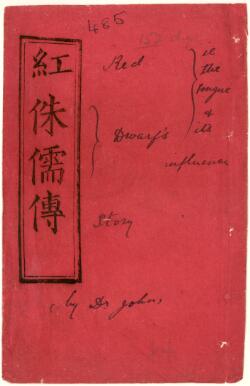 485
紅侏儒傳
Red
Dwarf's
Story
ie
the
tongue
&
its
influence
by Dr John,